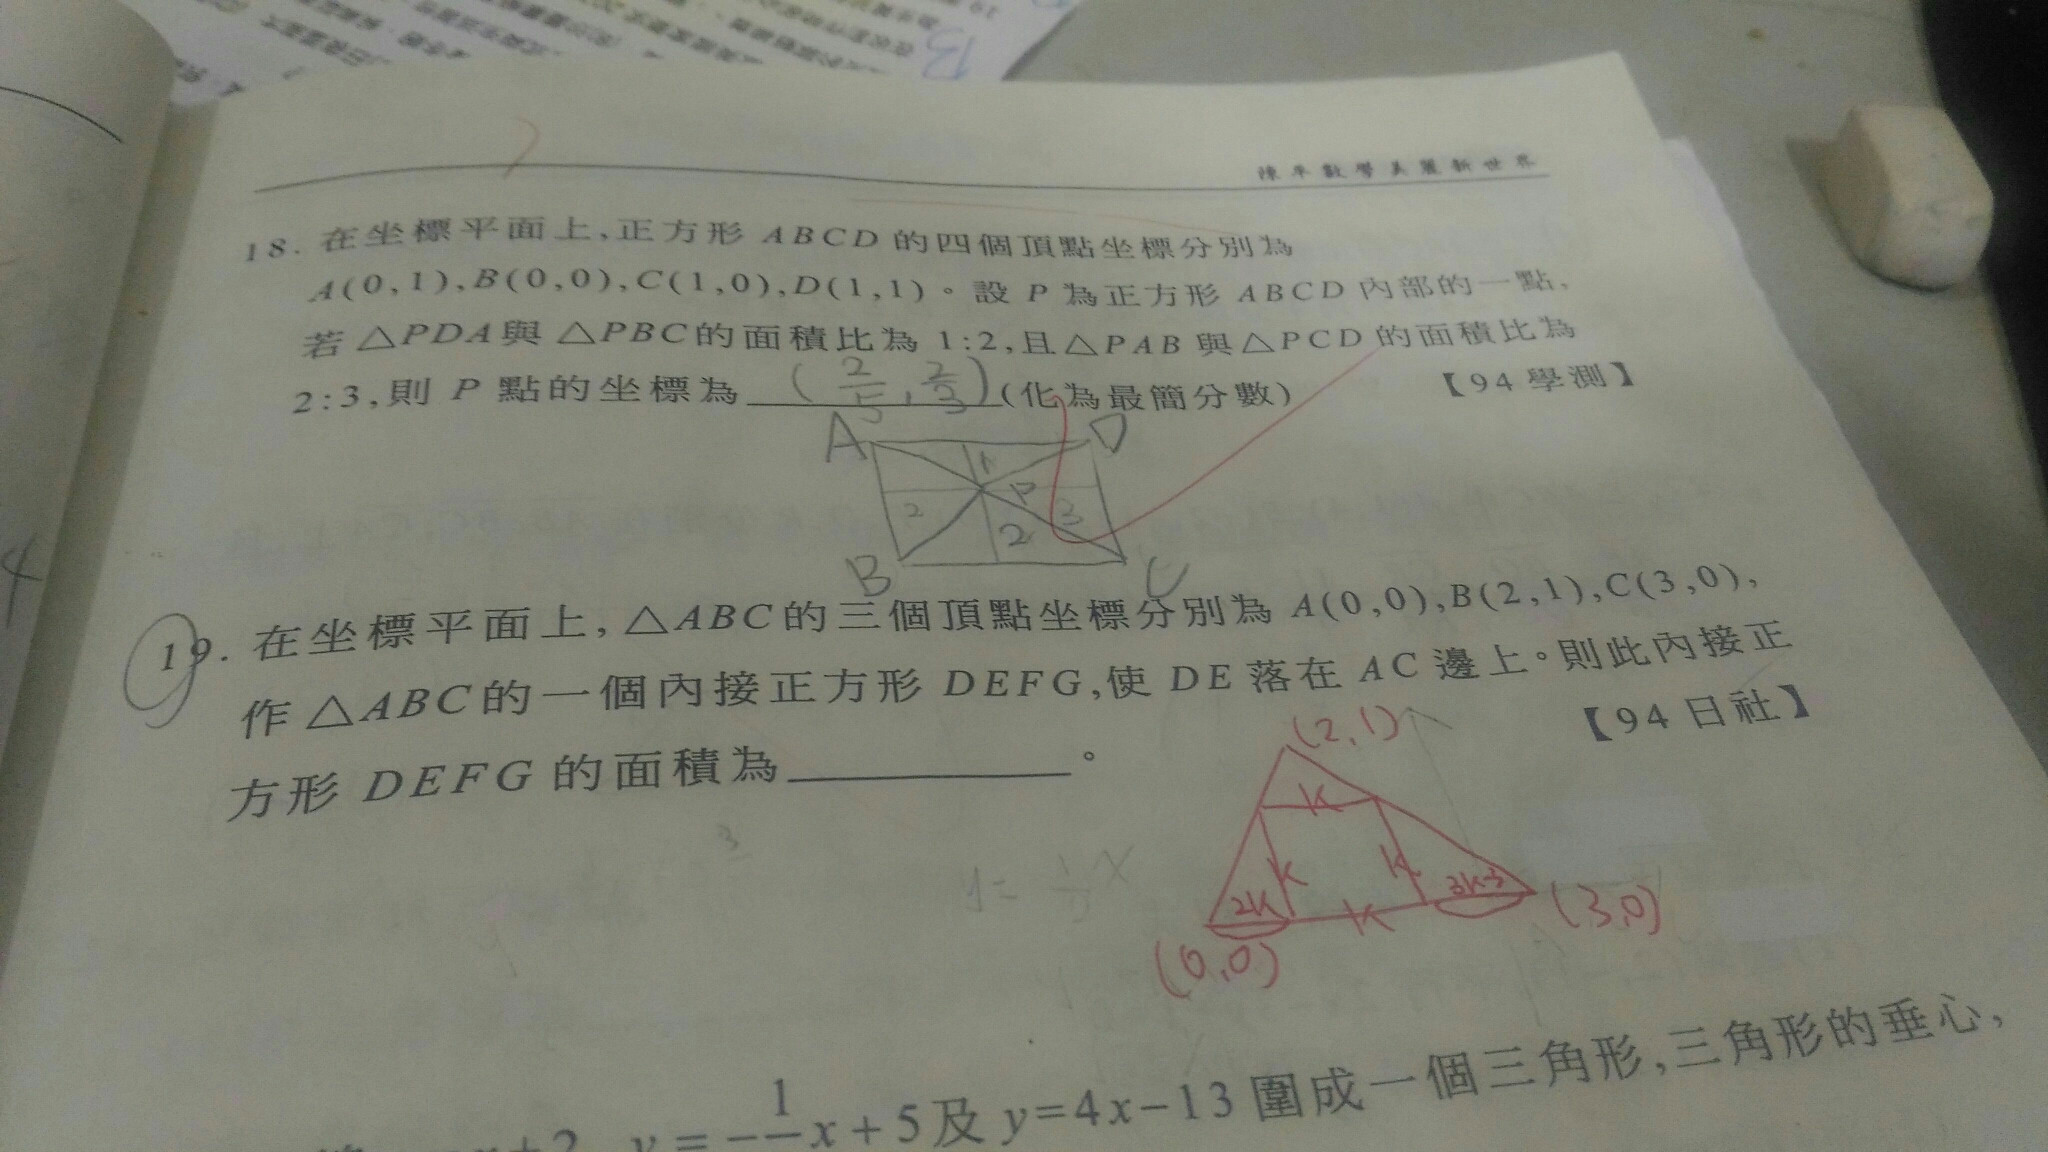 陳平數學美麗新世界
18. 在坐標平面上,正方形 ABCD 的四個頂點坐標分別為
A(0,1),B(0,0),C(1,0),D(1,1)。設 P 為正方形 ABCD 內部的一點,
若 △PDA 與 △PBC 的面積比為 1:2,且 △PAB 與 △PCD 的面積比為
2:3,則 P 點的坐標為 (2/5, 2/3) (化為最簡分數) 【94 學測】
A D
1
P
2 3
2
B C
19. 在坐標平面上,△ABC 的三個頂點坐標分別為 A(0,0),B(2,1),C(3,0),
作 △ABC 的一個內接正方形 DEFG,使 DE 落在 AC 邊上。則此內接正
方形 DEFG 的面積為 。 【94 日社】
(2,1)
K
K K
2K K 3K-3
(0,0) (3,0)
4
y=-1/ x+5 及 y=4x-13 圍成一個三角形,三角形的垂心,